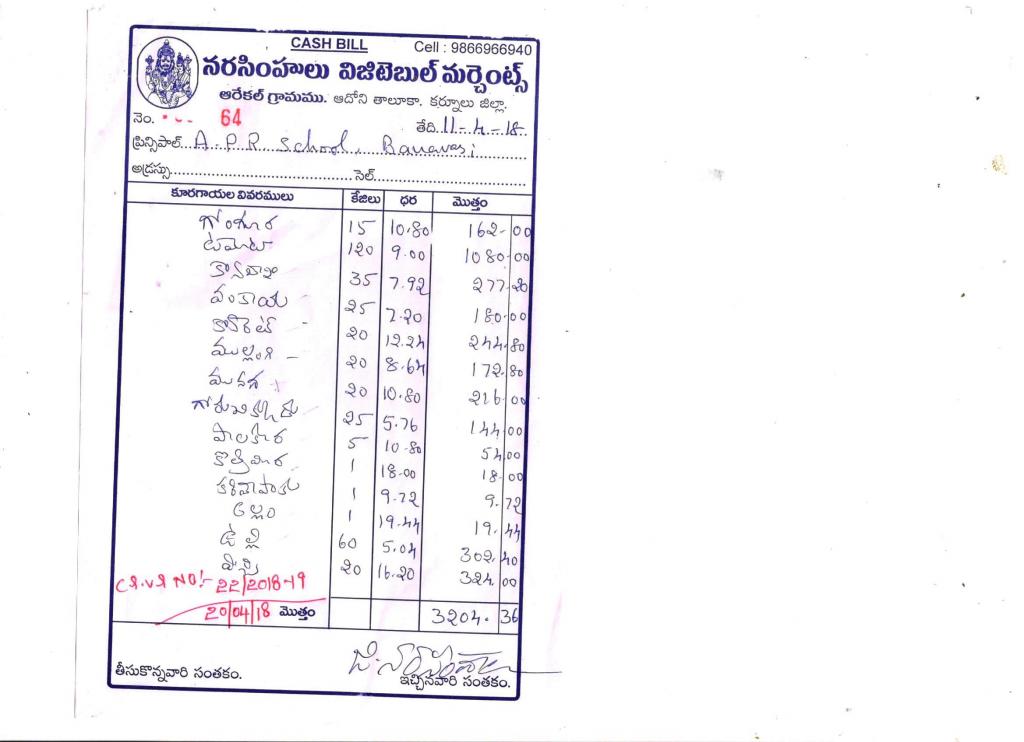 CASH BILL Cell : 9866966940
నరసింహులు విజిటెబుల్ మర్చెంట్స్
ఆరేకల్ గ్రామము. ఆదోని తాలూకా. కర్నూలు జిల్లా.
నెం. 64 తేది. 11-4-18.
ప్రిన్సిపాల్. A.P.R School, Banavasi
అడ్రస్సు. సెల్.
కూరగాయల వివరములు కేజిలు ధర మొత్తం
గోంగూర 15 10.80 162.00
టమోటా 120 9.00 1080.00
35 7.92 277.20
వంకాయ 25 7.20 180.00
క్యారెట్ 20 12.24 244.80
ముల్లంగి 20 8.64 172.80
మునగ 20 10.80 216.00
గోరుచిక్కుడు 25 5.76 144.00
పాలకూర 5 10.80 54.00
కొత్తిమీర 1 18.00 18.00
కరివేపాకు 1 9.72 9.72
అల్లం 1 19.44 19.44
ఉల్లి 60 5.04 302.40
20 16.20 324.00
CB.VR NO:- 22/2018-19
20/04/18 మొత్తం 3204.36
తీసుకొన్నవారి సంతకం. ఇచ్చినవారి సంతకం.